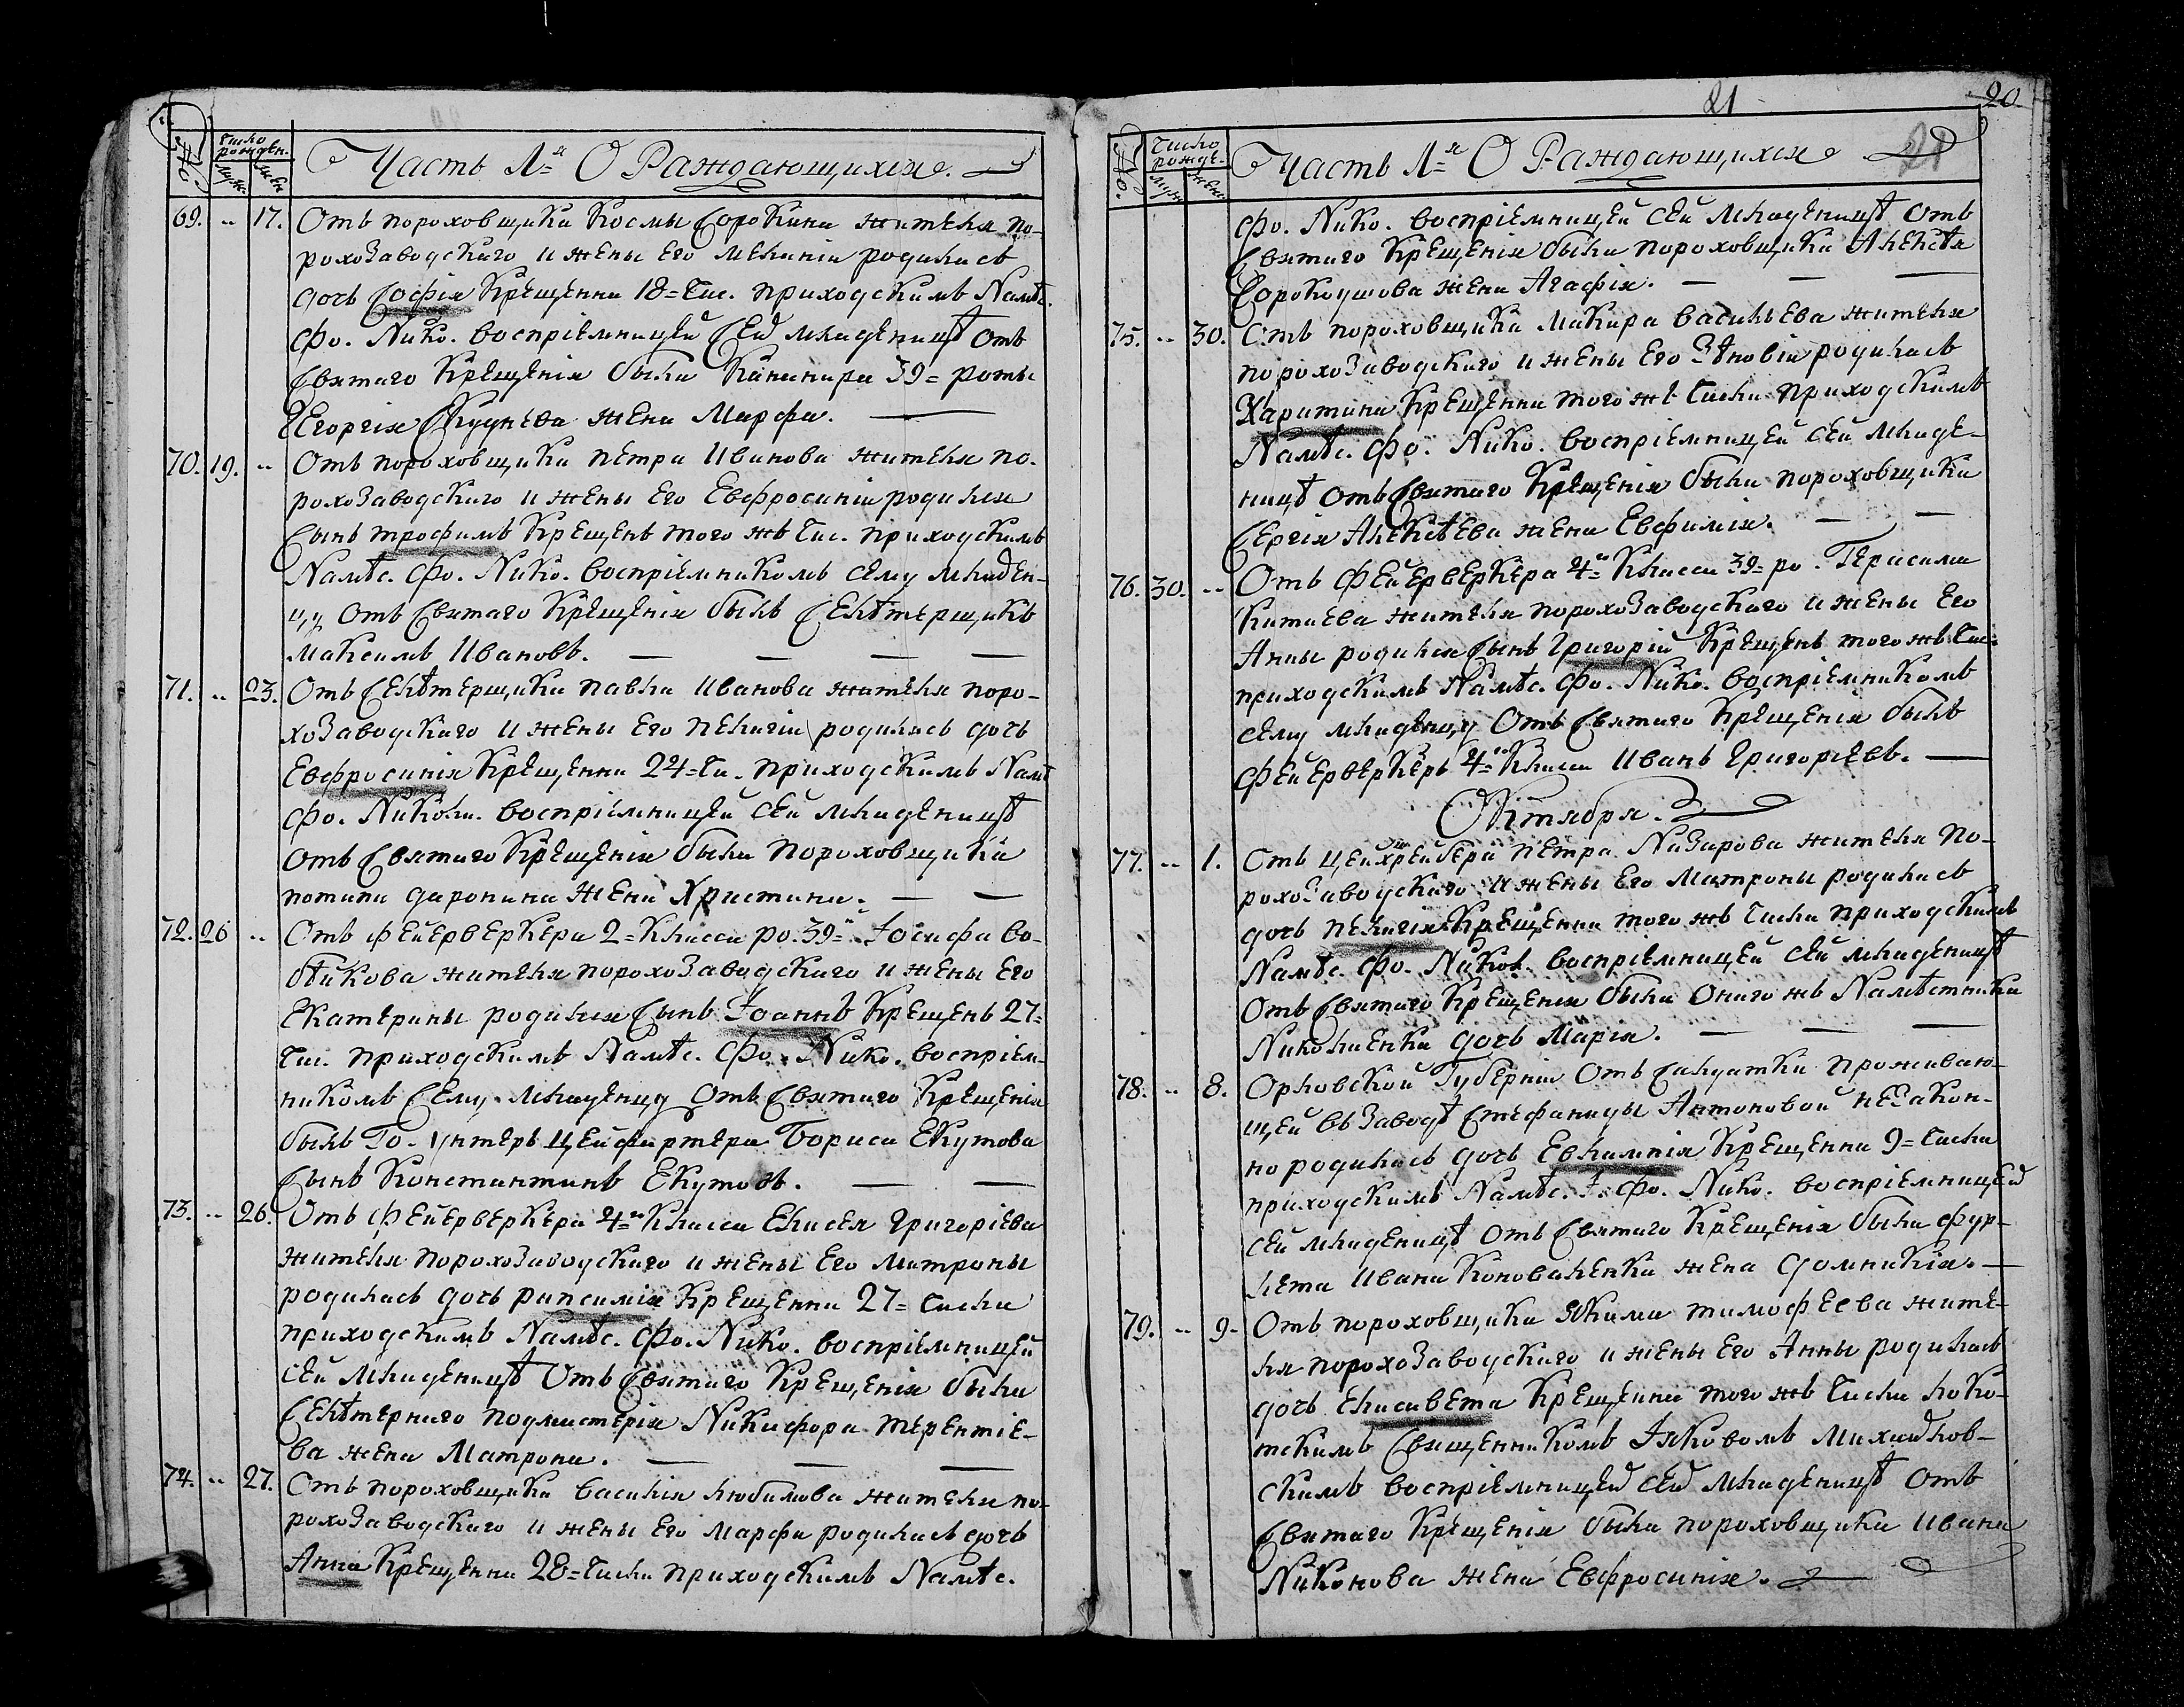 №.
Число рожден.
муж. жен.
Часть 1=я О Раждающихся.
69. .. 17. Отъ пороховщика Космы Сорокина жителя по-
рохозаводскаго и жены его Меланіи родилась
дочь Софія крещенна 18= чис. приходскимъ Намѣс.
Фо. Нико. воспріемницей сей младеницѣ отъ
Святаго Крещенія была Канонира 39= роты
Егоргія Скуднева жена Марфа.
70. 19. .. Отъ пороховщика Петра Иванова жителя по-
рохозаводскаго и жены его Евфросиніи родился
Сынъ Трофимъ крещенъ того жъ чис. приходскимъ
Намѣс. Фо. Нико. воспріемникомъ сему младен-
цу отъ Святаго Крещенія былъ Селѣтерщикъ
Максимъ Ивановъ.
71. .. 23. Отъ Селѣтерщика Павла Иванова жителя поро-
хозаводскаго и жены его Пелагіи родилась дочь
Евфросинія крещенна 24= чи. приходскимъ Намѣ
Фо. Никола. воспріемницей сей младеницѣ
отъ Святаго Крещенія была пороховщика
Потапа Даронина жена Христина.
72. 26 .. Отъ Фейерверкера 2= класса ро. 39=й Іосифа Бо-
бѣйкова жителя порохозаводскаго и жены его
Екатерины родился Сынъ Іоаннъ крещенъ 27=
чис. приходскимъ Намѣс. Фо. Нико. воспріем-
никомъ сему младенцу отъ Святаго Крещенія
былъ Го. унтеръ цейфартера Бориса Екутова
Сынъ Константинъ Екутовъ.
73. .. 26. Отъ Фейерверкера 4=го класса Елисея Григоріева
жителя порохозаводскаго и жены его Матроны
родилась дочь Рипсимія крещенна 27= числа
приходскимъ Намѣс. Фо. Нико. воспріемницей
сей младеницѣ отъ Святаго Крещенія была
Селѣтернаго подмастерія Никифора Терентіе-
ва жена Матрона.
74. .. 27. Отъ пороховщика Василія Любимова жителя по-
рохозаводскаго и жены его Марфы родилась дочь
Анна крещенна 28= числа приходскимъ Намѣс.
21
20
21
№.
Число рожде-
муж жен.
Часть 1=я О Раждающихся
Фо. Нико. воспріемницей сей младеницѣ отъ
Святаго Крещенія была пороховщика Алексѣя
Сорокоумова жена Агафія.
75. .. 30. Отъ пороховщика Макара Васильева жителя
порохозаводскаго и жены его Зѣновіи родилась
Харитина крещенна того жъ числа приходскимъ
Намѣс. Фо. Нико. воспріемницей сей младе-
ницѣ отъ Святаго Крещенія была пороховщика
Сергія Алексѣева жена Евфимія.
76. 30. .. Отъ Фейерверкера 4=го класса 39= ро. Герасима
Китаева жителя порохозаводскаго и жены его
Анны родился Сынъ Григорій крещенъ того жъ чис.
приходскимъ Намѣс. Фо. Нико. воспріемникомъ
сему младенцу отъ Святаго Крещенія былъ
Фейерверкеръ 4=го класса Иванъ Григоріевъ.
Октября.
77. .. 1. Отъ цейхшрейбера Петра Назарова жителя по-
рохозаводскаго и жены его Матроны родилась
дочь Пелагія крещенна того жъ числа приходскимъ
Намѣс. Фо. Никол. воспріемницей сей младеницѣ
отъ Святаго Крещенія была онаго жъ Намѣстника
Николаенка дочь Марія.
78. .. 8. Орловской Губерніи отъ салдатки проживаю-
щей въ заводѣ Стефаниды Антоновой незакон-
но родилась дочь Евлампія крещенна 9= числа
приходскимъ Намѣс. І. Фо. Нико. воспріемницей
сей младеницѣ отъ Святаго Крещенія была фур-
лета Ивана Коноваленка жена Домникія.
79. .. 9. Отъ пороховщика Якима Тимофеева жите-
ля порохозаводскаго и жены его Анны родилась
дочь Елисавета крещенна того жъ числа локо-
тскимъ Священникомъ Іяковомъ Михайлов-
скимъ воспріемницей сей младеницѣ отъ
Святаго Крещенія была пороховщика Ивана
Никонова жена Евфросинія.